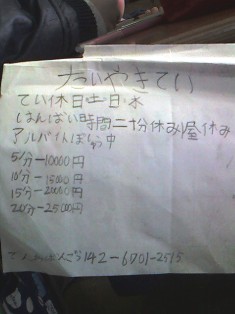 たいやきてい
てい休日土日・水
はんばい時間二十分休み昼休み
アルバイトぼしゅう中
5分-10000円
10分-15000円
15分-20000円
20分-25000円
142-6701-2515